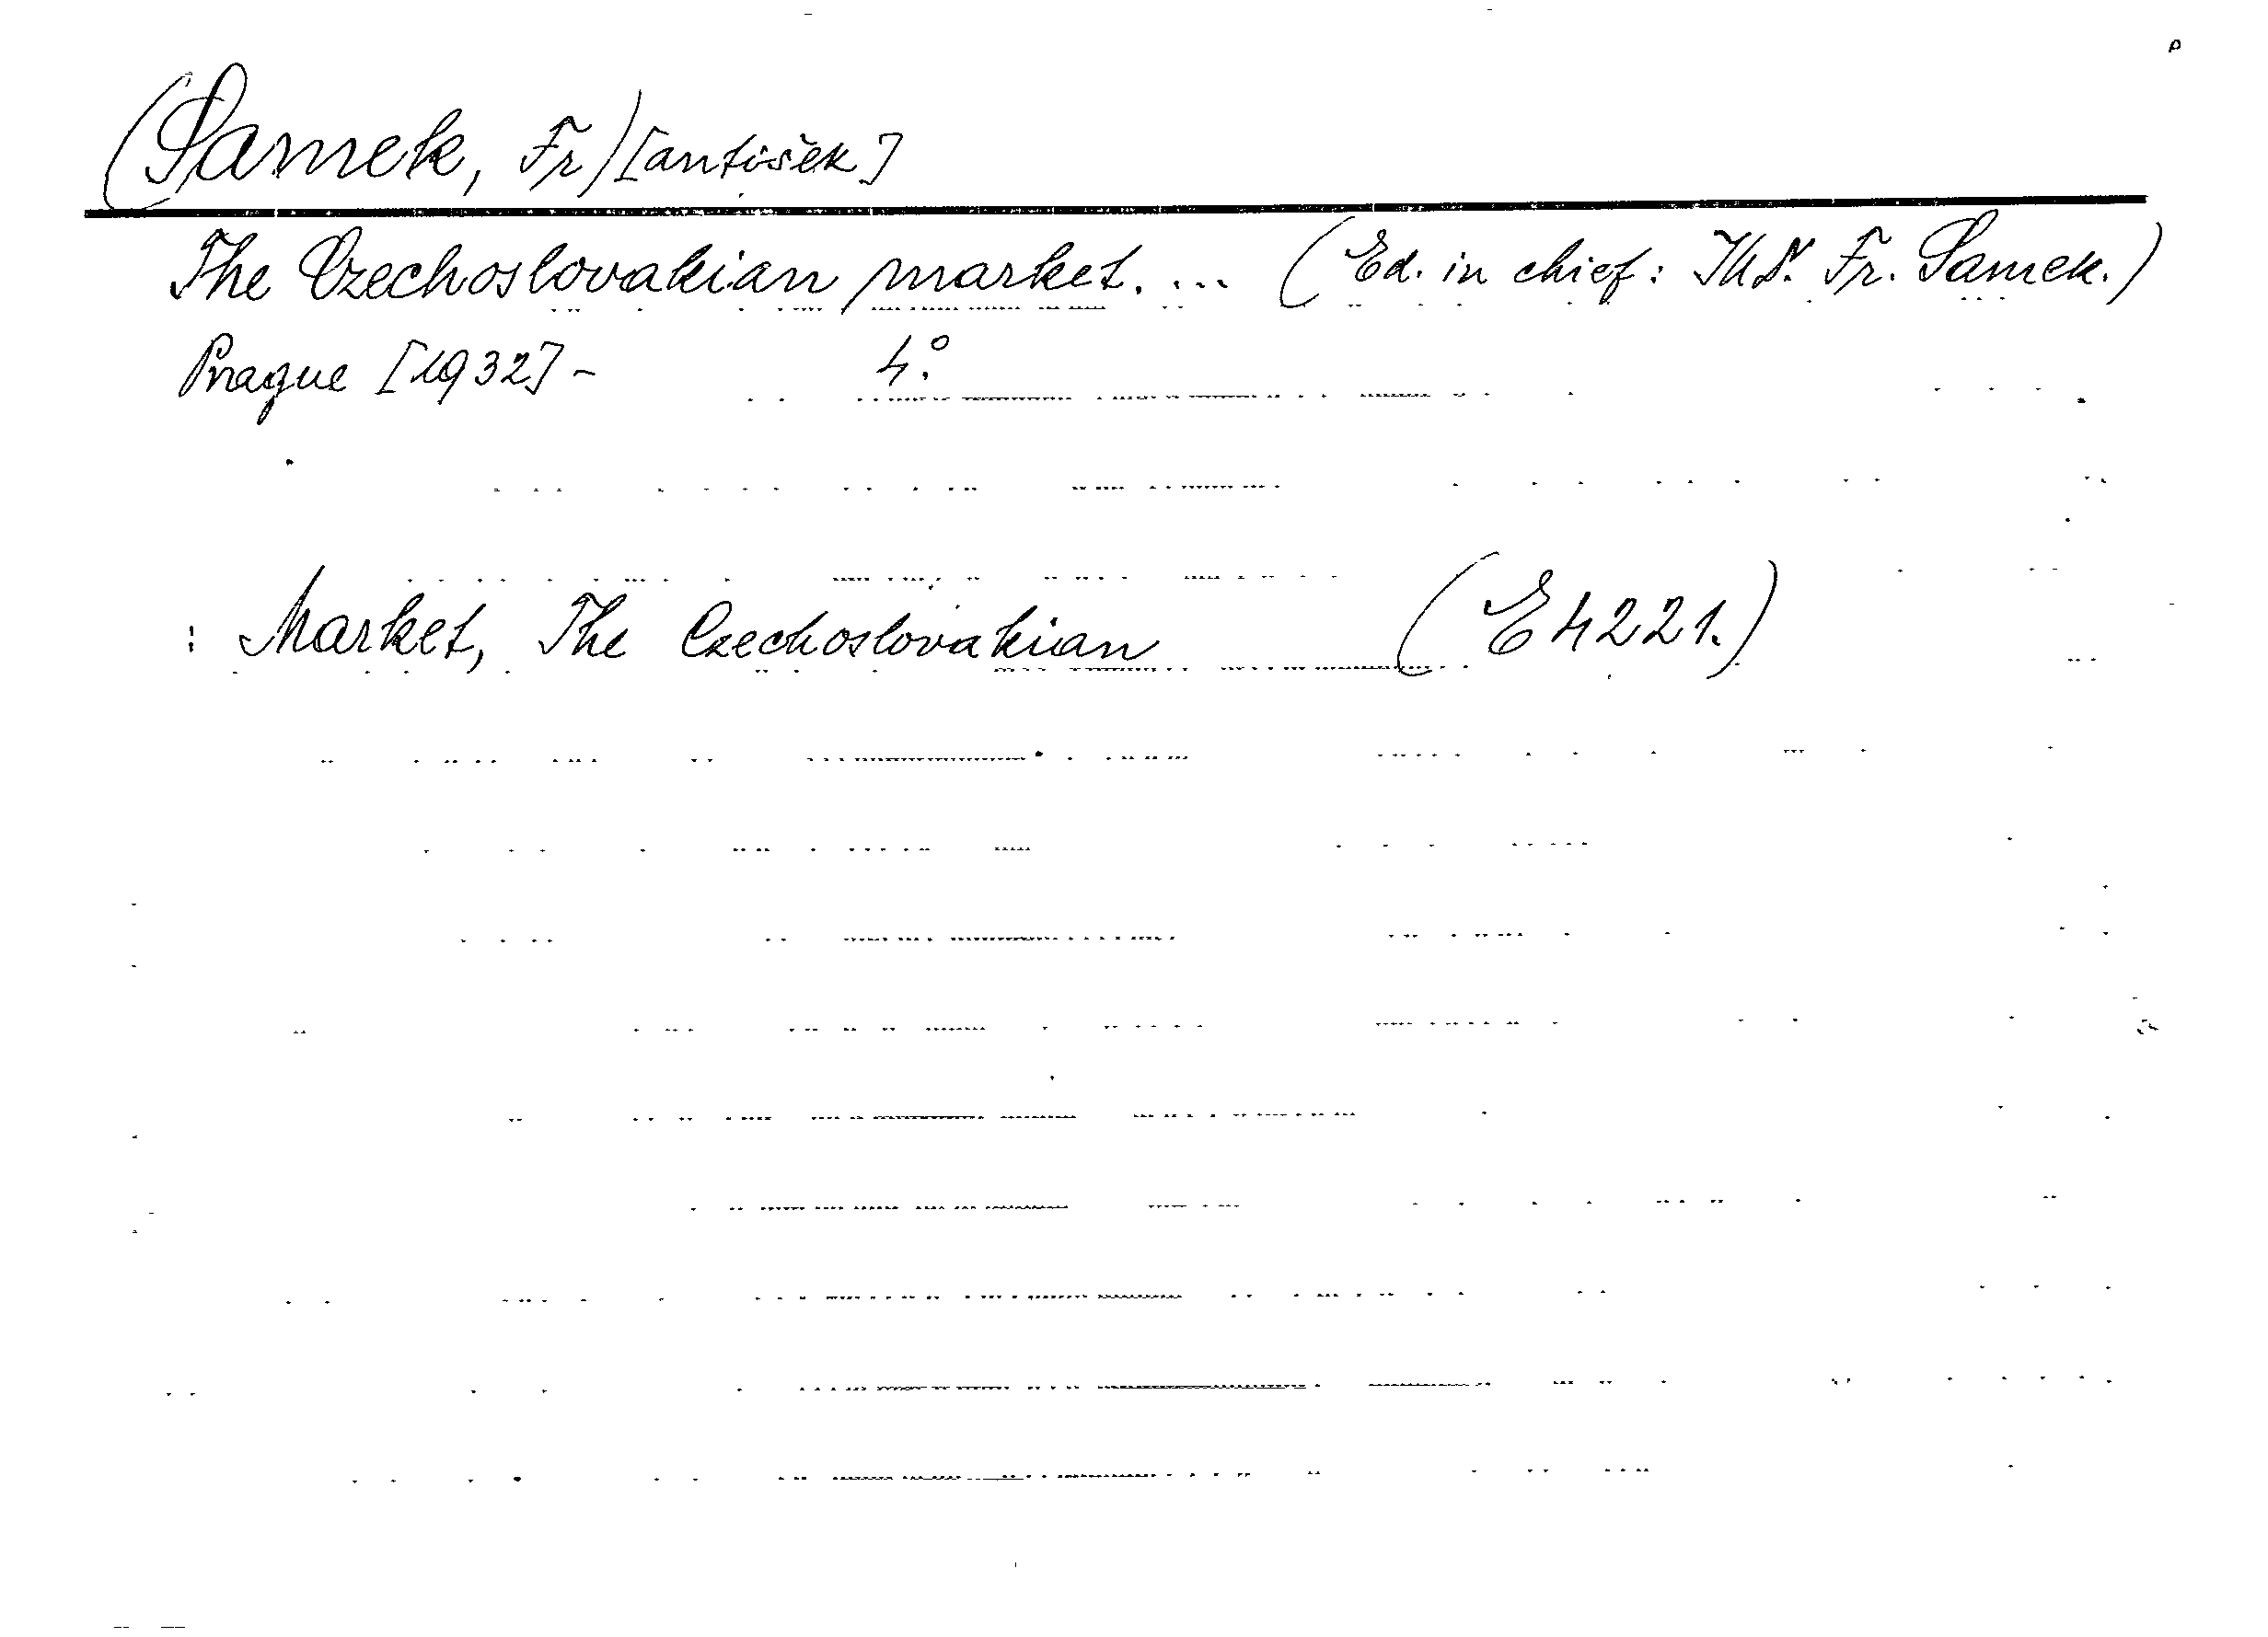 (Samek, Fr)[antišek]
The Czechoslovakian market. ... (Ed. in chief: Fr. Samek.)
Prague [1932] - 4:o
: Market, The Czechoslovakian (E 4221.)